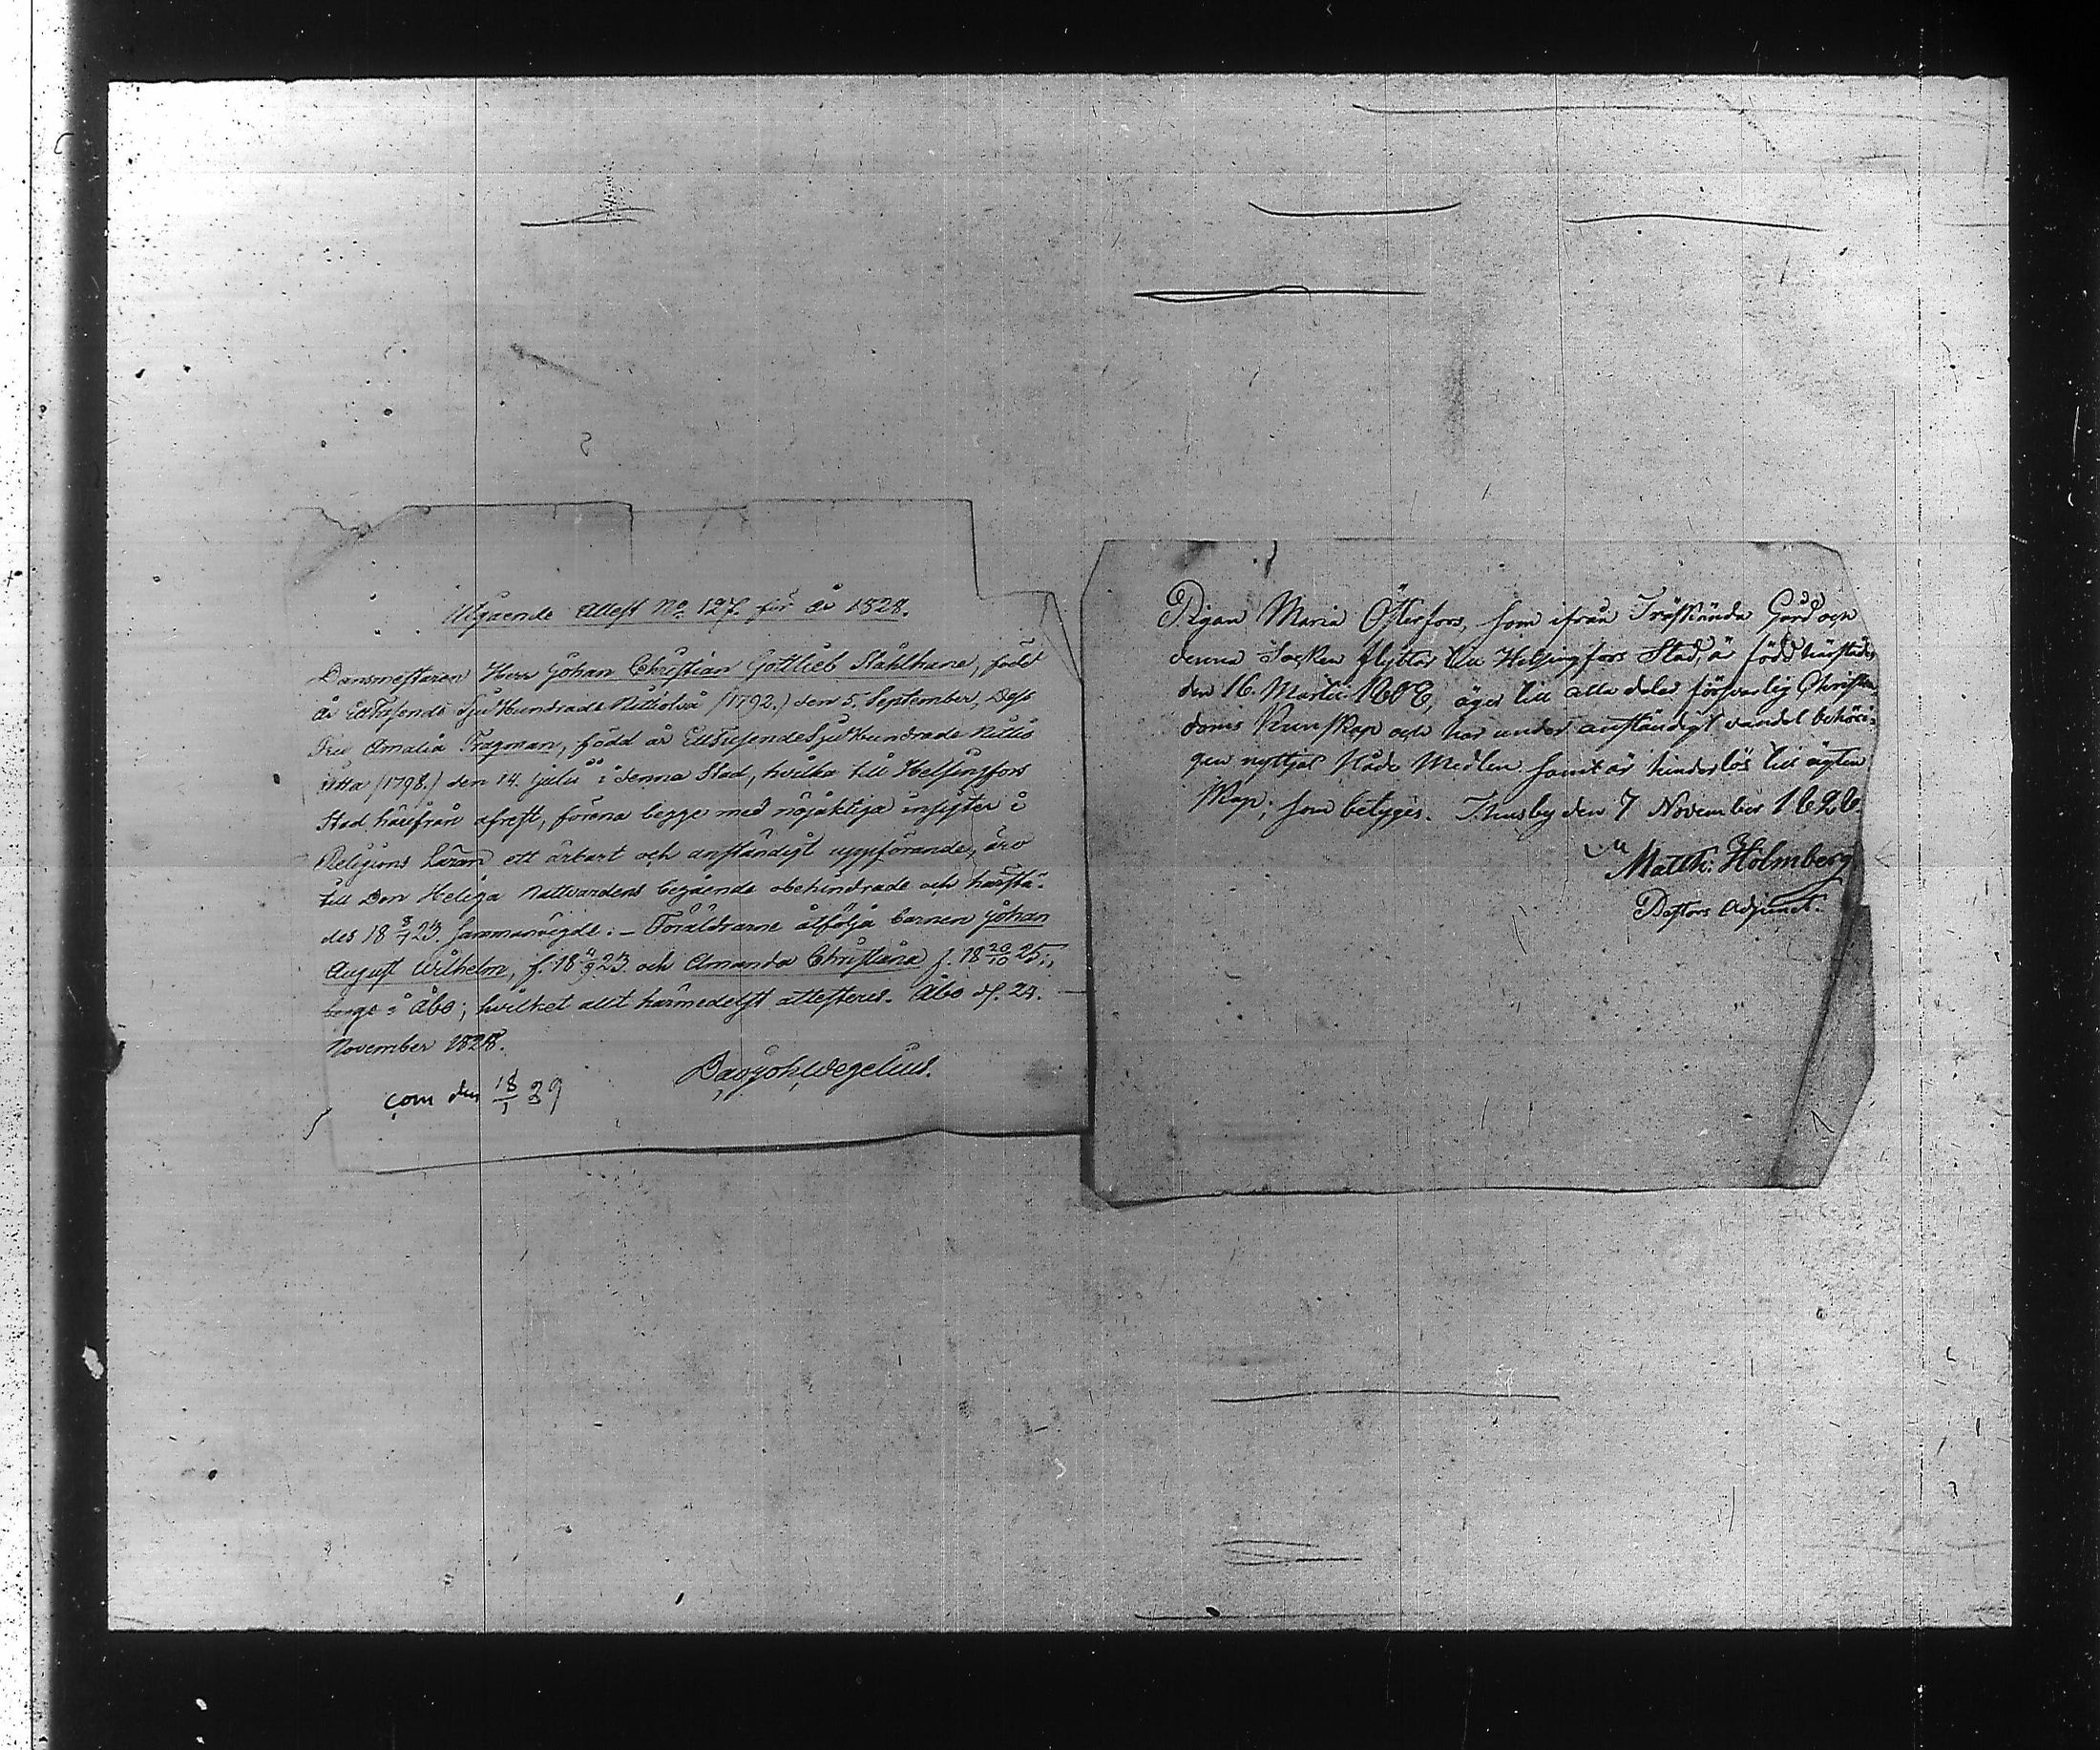 Utgående Attest No 127. för år 1828.
Dansmestaren Herr Johan Christian Gottlieb Stålhane, född
år Ettusende Sjuhundrade Nittiotvå (1792.) den 5. September, Dess
Fru Amalia Tragman, född år Ettusende Sjuhundrade Nittio
åtta (1798.) den 14. Julii i denna Stad, hvilka till Helsingfors
Stad härifrån afrest, förena begge med nöjaktiga insigter i
Religions Läran ett ärbart och anständigt uppförande, äro
till Den Heliga Nattvardens begående obehindrade och härstä-
des 18 23. sammanvigde. – Föräldrarne åtfölja barnen Johan
August Wilhelm, f. 18 23. och Amanda Christiana f. 18 20/10 25.,
begge i Åbo; hvilket allt härmedelst attesteras. Åbo d. 24.
November 1828.
Dav. Joh. Wegelius.
com den 18/1 29
Pigan Maria Österfors, som ifrån Träskända Gård och
denna Socken flyttar till Helsingfors Stad, är född härstädes
den 16. Martii 1808, äger till alla delar försvarlig Christen-
doms Kunskap och har under anständigt vandel behöri-
gen nyttjat Nåde Medlen samt är hinderlös till ägten
skap; som betygas. Thusby den 7 November 1828.
Matth: Holmberg
Pastors Adjunct.